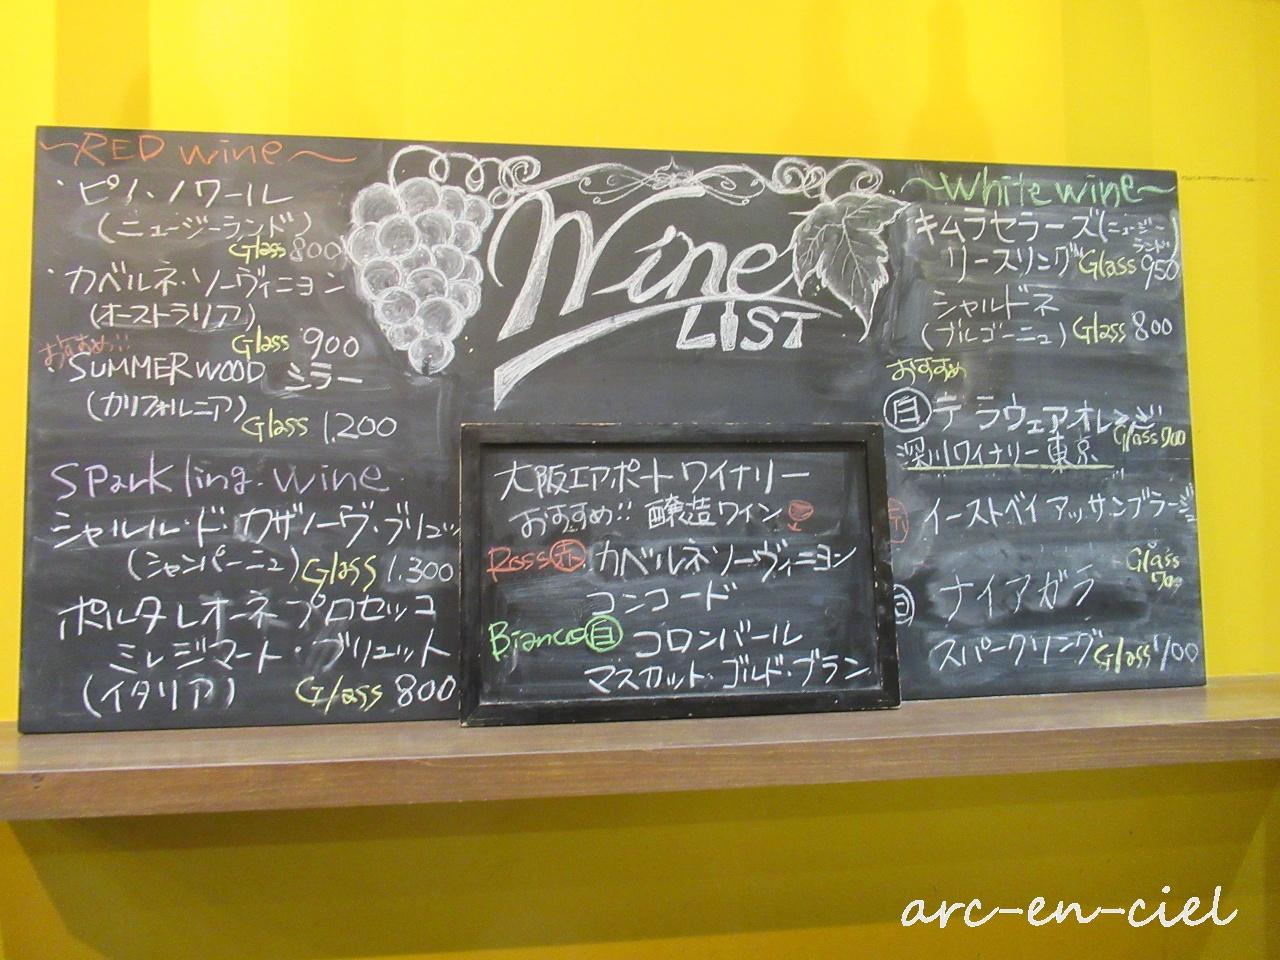 ~RED wine~
・ピノ・ノワール
(ニュージーランド)
Glass 800
・カベルネ・ソーヴィニョン
(オーストラリア)
Glass 900
おすすめ!!
SUMMERWOOD シラー
(カリフォルニア)
Glass 1,200
Sparkling.wine
シャルル・ド・カザノーヴ・ブリュッ
(シャンパーニュ) Glass 1,300
ポルタレオーネ プロセッコ
ミレジマート・ブリュット
(イタリア) Glass 800
Wine
LIST
大阪エアポートワイナリー
おすすめ!! 醸造ワイン
Ross 赤 カベルネソーヴィニヨン
コンコード
Bianco 白 コロンバール
マスカット・ゴルド・ブラン
~White wine~
キムラセラーズ(ニュージーランド)
リースリング Glass 950
シャルドネ
(ブルゴーニュ) Glass 800
おすすめ
白 デラウェアオレンジ
Glass 700
深川ワイナリー東京
赤 イーストベイ アッサンブラージュ
Glass 700
白 ナイアガラ
スパークリング Glass 700
arc-en-ciel